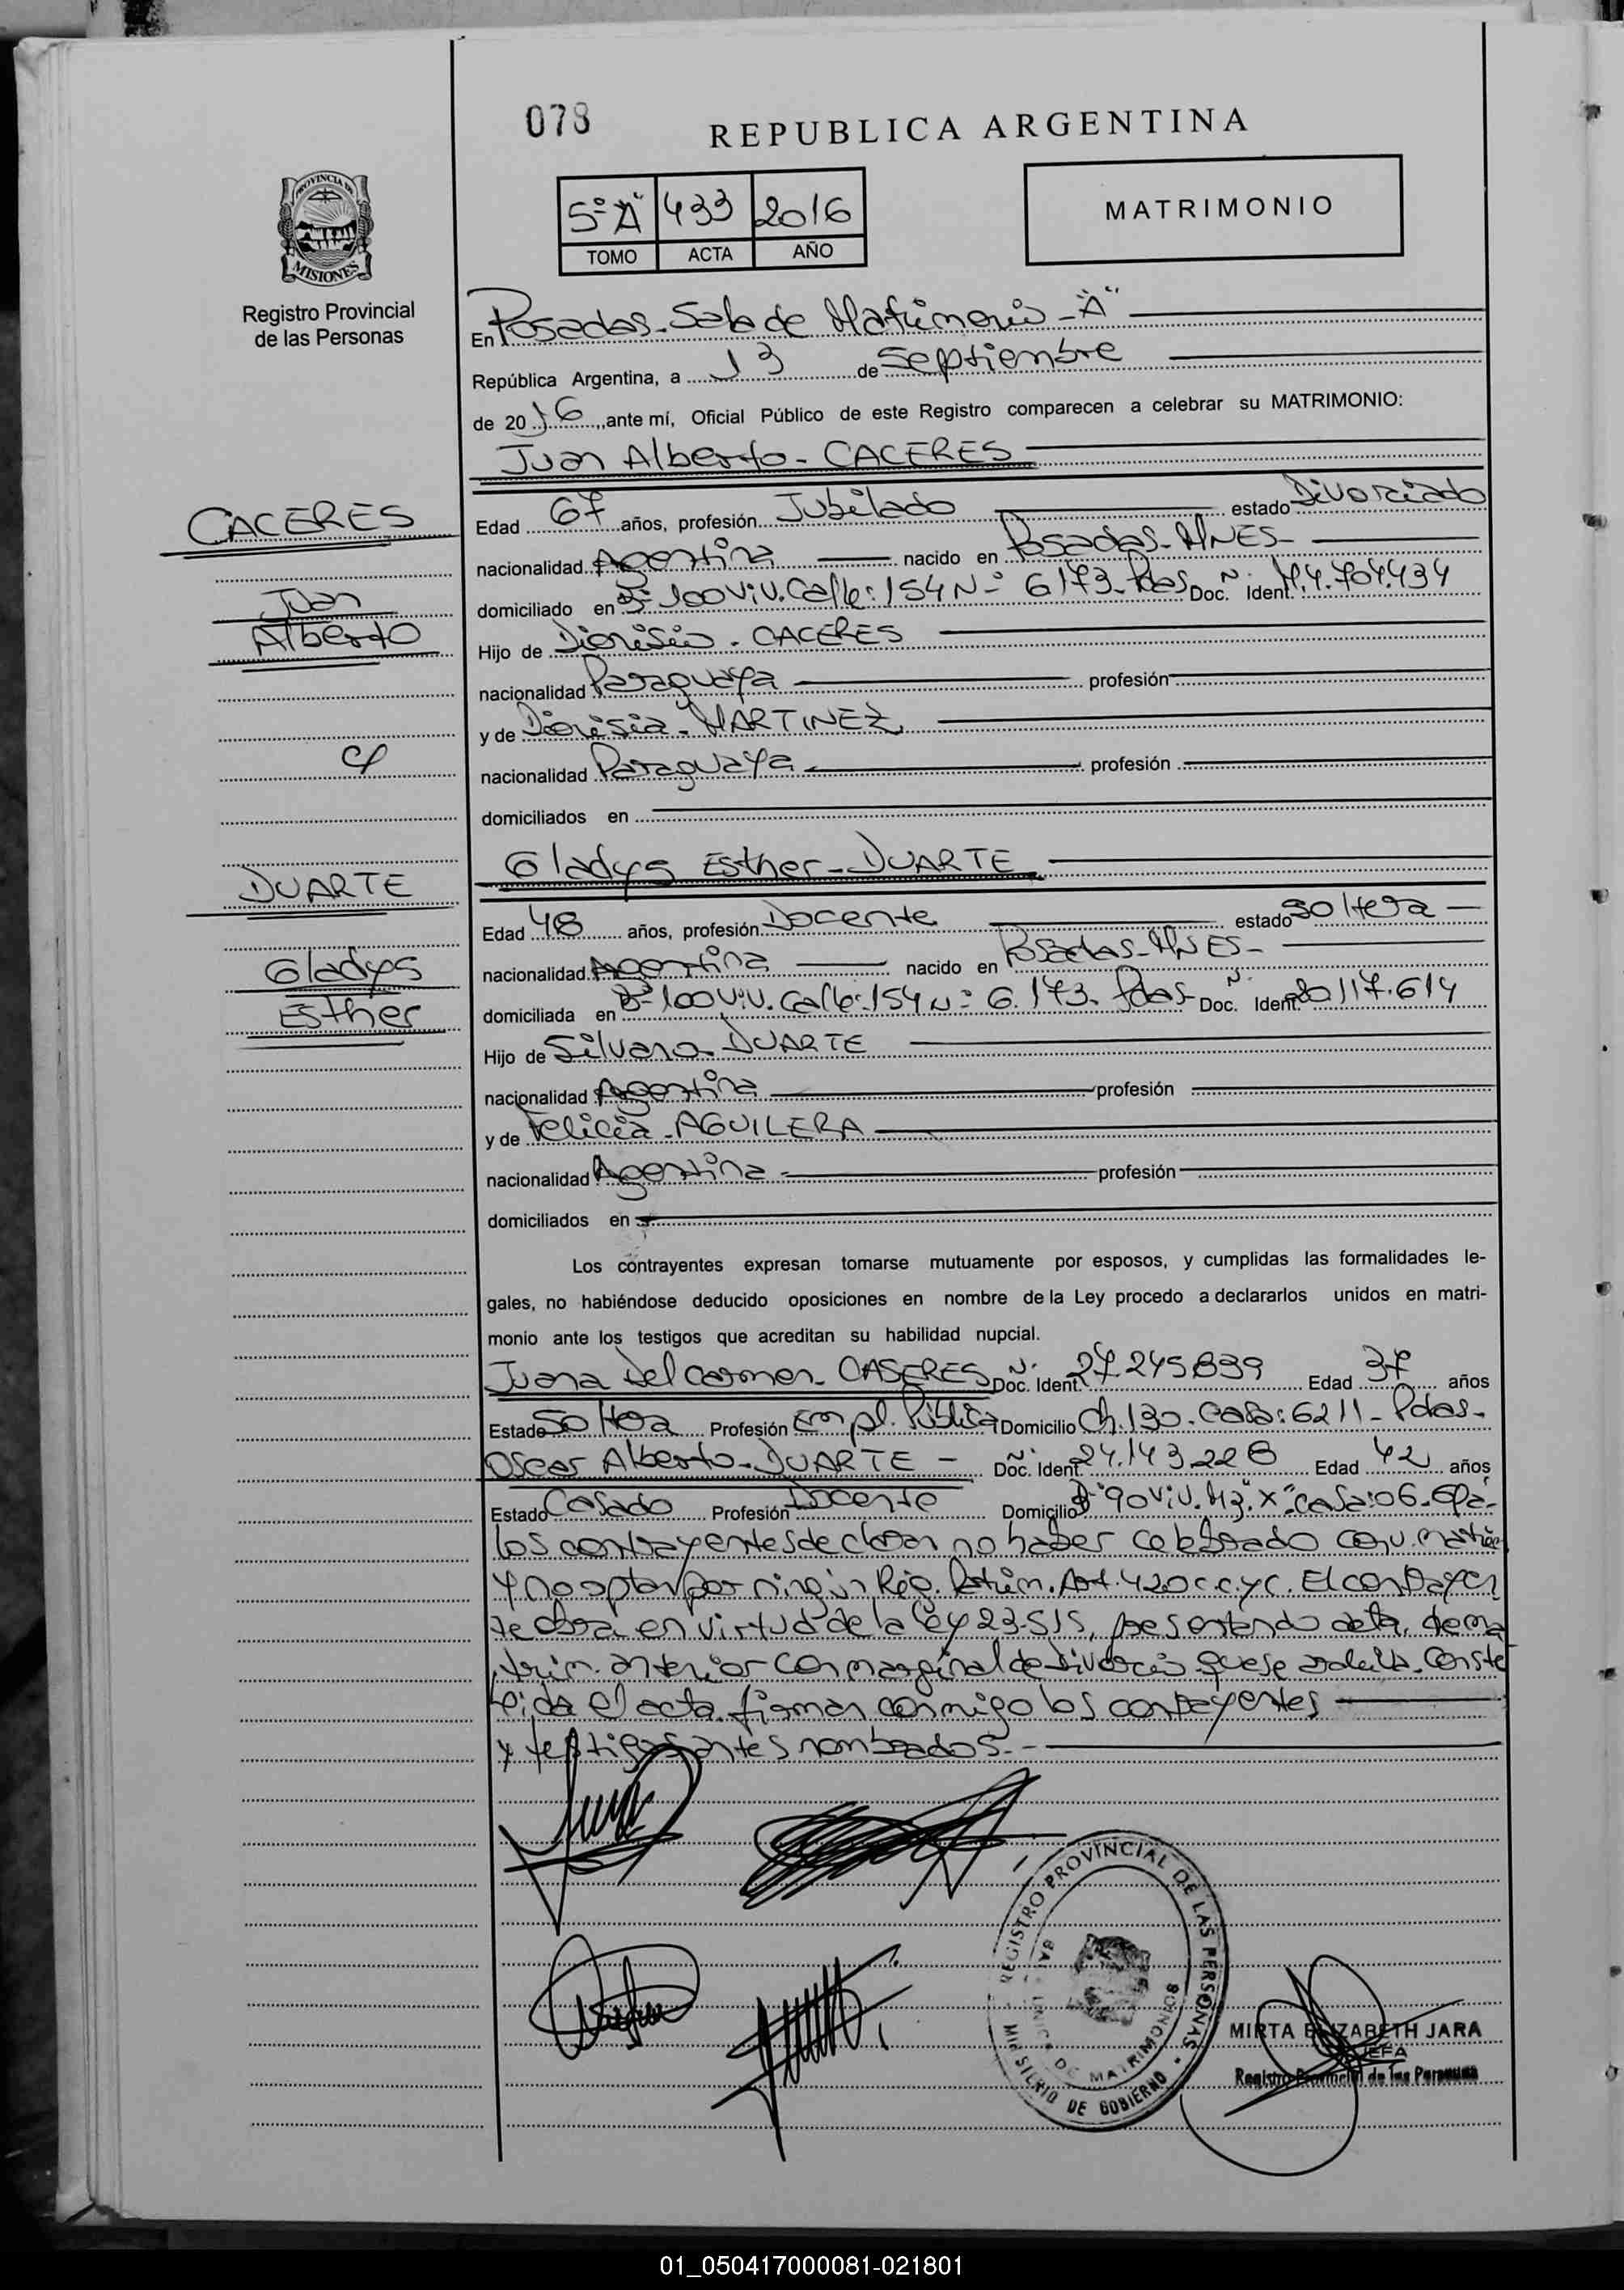 078
REPUBLICA ARGENTINA
PROVINCIA DE
MISIONES
Registro Provincial
de las Personas
5º "A" 433 2016
TOMO ACTA AÑO
MATRIMONIO
En Posadas - Sala de Matrimonio - "A"
República Argentina, a 13 de Septiembre
de 2016, ante mí, Oficial Público de este Registro comparecen a celebrar su MATRIMONIO:
Juan Alberto - CACERES
CACERES
Juan
Alberto
Edad 67 años, profesión Jubilado estado Divorciado
nacionalidad Argentina nacido en Posadas - MNES -
domiciliado en Bº 100 Viv. Calle: 154 Nº 6173 - Pdas Doc. Nº Ident. M4.704.434
Hijo de Dionisio - CACERES
nacionalidad Paraguaya profesión
y de Dionisia - MARTINEZ
nacionalidad Paraguaya profesión
domiciliados en
Gladys Esther - DUARTE
DUARTE
Gladys
Esther
Edad 48 años, profesión Docente estado Soltera -
nacionalidad Argentina nacido en Posadas - MNES -
domiciliada en Bº 100 Viv. Calle: 154 Nº 6.173 - Pdas Doc. Nº Ident. 20.117.614
Hijo de Silvano - DUARTE
nacionalidad Argentina profesión
y de Felicia - AGUILERA
nacionalidad Argentina - profesión
domiciliados en
Los contrayentes expresan tomarse mutuamente por esposos, y cumplidas las formalidades le-
gales, no habiéndose deducido oposiciones en nombre de la Ley procedo a declararlos unidos en matri-
monio ante los testigos que acreditan su habilidad nupcial.
Juana Del Carmen - CASERES Doc. Nº Ident. 27.245.839 Edad 37 años
Estado Soltera Profesión Empl. Pública Domicilio Ch. 130 - Casa: 6211 - Pdas -
Oscar Alberto - DUARTE - Doc. Nº Ident. 24.143.228 Edad 42 años
Estado Casado Profesión Docente Domicilio Bº 90 Viv. Mz. "X" Casa: 06 -
los contrayentes declaran no haber celebrado conv.
y no optar por ningún Rég. Patrim. Art. 420 c.c.y c. El contrayen
te obra en virtud de la ley 23.515, presentando acta de ma
trim. anterior con marginal de Divorcio que se Conste
leida el acta firman conmigo los contrayentes
y testigos antes nombrados. -
REGISTRO PROVINCIAL DE LAS PERSONAS
DE MATRIMONIOS
DE GOBIERNO
MIRTA ELIZABETH JARA
JEFA
Registro Provincial de las Personas
01_050417000081-021801